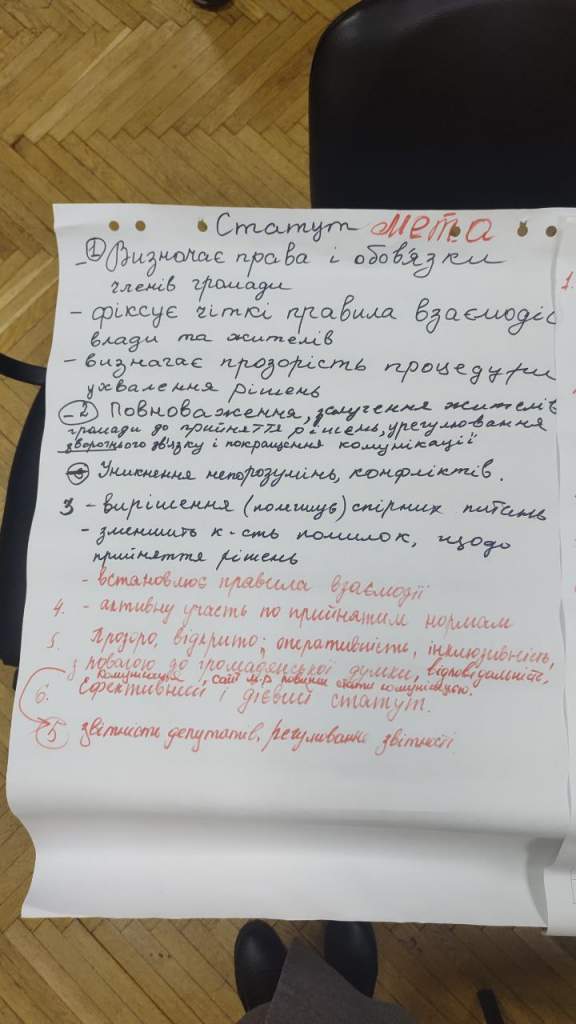 Статут мета
- 1 Визначає права і обов'язки
членів громади
- фіксує чіткі правила взаємодії
влади та жителів
- визначає прозорість процедури
ухвалення рішень
- 2 Повноваження, залучення жителів
громади до прийняття рішень, урегулювання
зворотнього зв'язку і покращення комунікації
Уникнення непорозумінь, конфліктів.
3 - вирішення (полегшує) спірних питань
- зменшить к-сть помилок, щодо
прийняття рішень
- встановлює правила взаємодії
4. - активну участь по прийнятим нормам
5. Прозоро, відкрито; оперативність, інклюзивність,
з повагою до громадянської думки, відповідальність,
комунікація, сайт М.Р повинен стати комунікацією.
6. Ефективний і дієвий статут.
5 звітність депутатів, регулювання звітності
1.